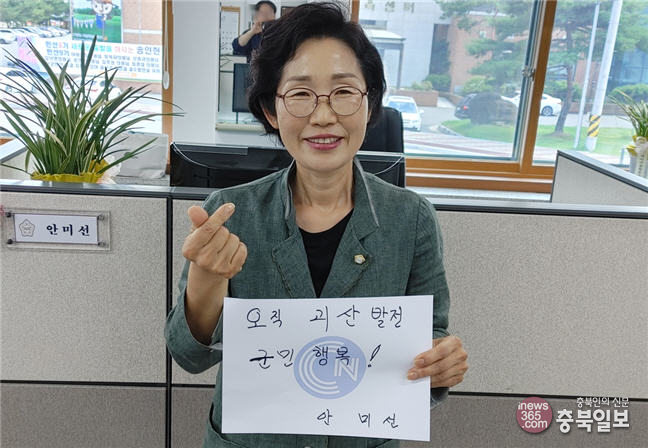 안미선
오직 괴산발전
군민 행복!
안 미 선
CCN
충북인의 신문
inews365.com 충북일보